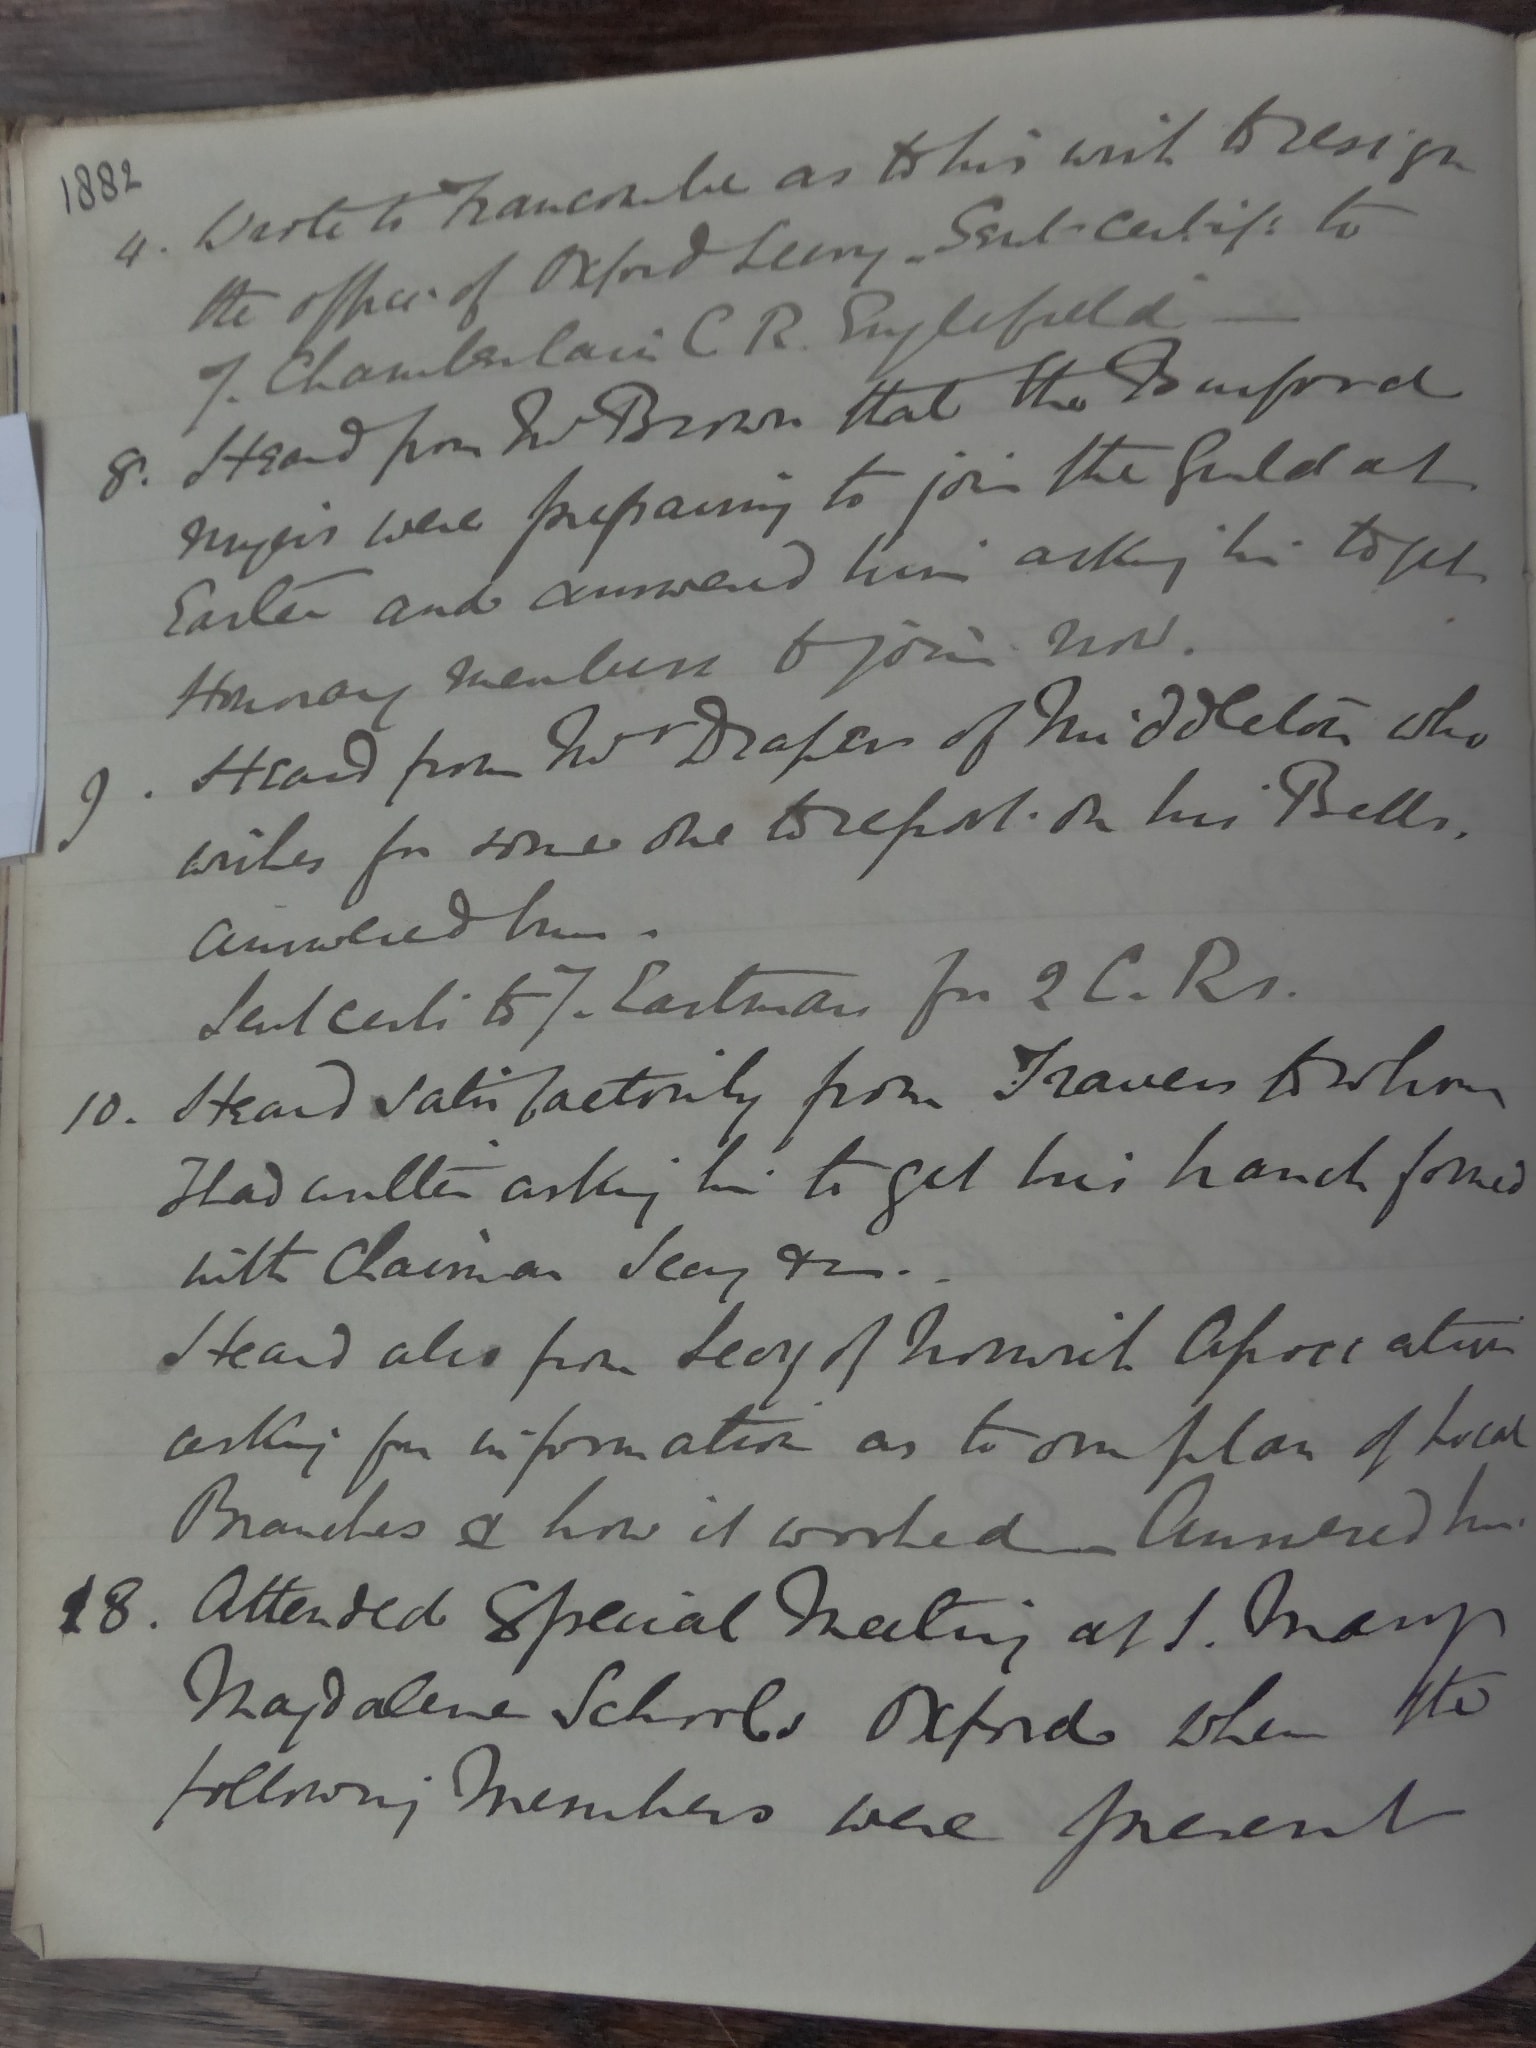 1882
4. Wrote to Francombe as to his wish to resign
the office of Oxford Secry. Sent certif: to
J. Chamberlain C R. Englefield —
8. Heard from Mr Brown that the Burford
ringers were preparing to join the Guild at
Easter and answered him asking him to get
Honorary members to join now.
9. Heard from Mr Draper of Middleton who
wishes for some one to report on his Bells.
answered him.
Sent certi to J. Eastman for 2 C. Rs.
10. Heard satisfactorily from Travers to whom
I had written asking him to get his branch formed
with Chairman Secry &c..
Heard also from Secry of Norwich Association
asking for information as to our plan of Local
Branches & how it worked — Answered him.
18. Attended Special Meeting at S. Mary
Magdalene Schools Oxford when the
following Members were present